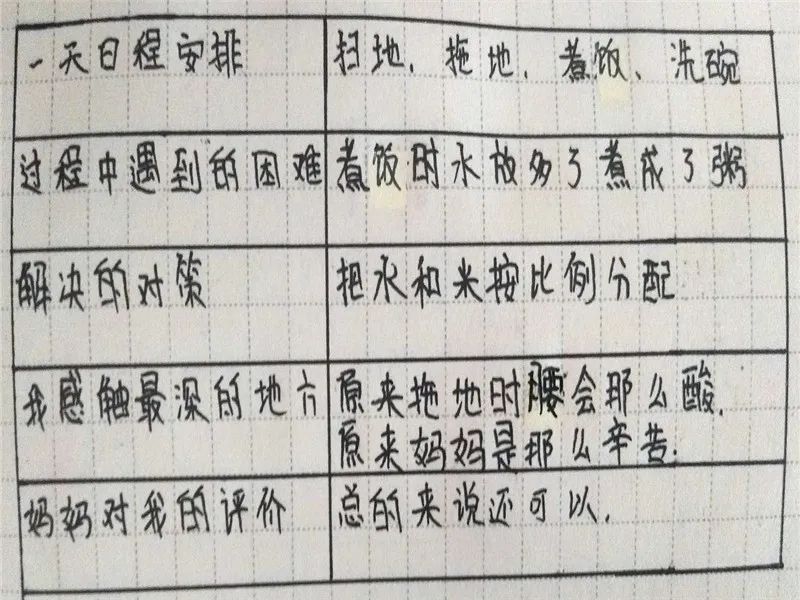 一天日程安排
扫地,拖地,煮饭、洗碗
过程中遇到的困难
煮饭时水放多了煮成了粥
解决的对策
把水和米按比例分配
我感触最深的地方
原来拖地时腰会那么酸,
原来妈妈是那么辛苦.
妈妈对我的评价
总的来说还可以.